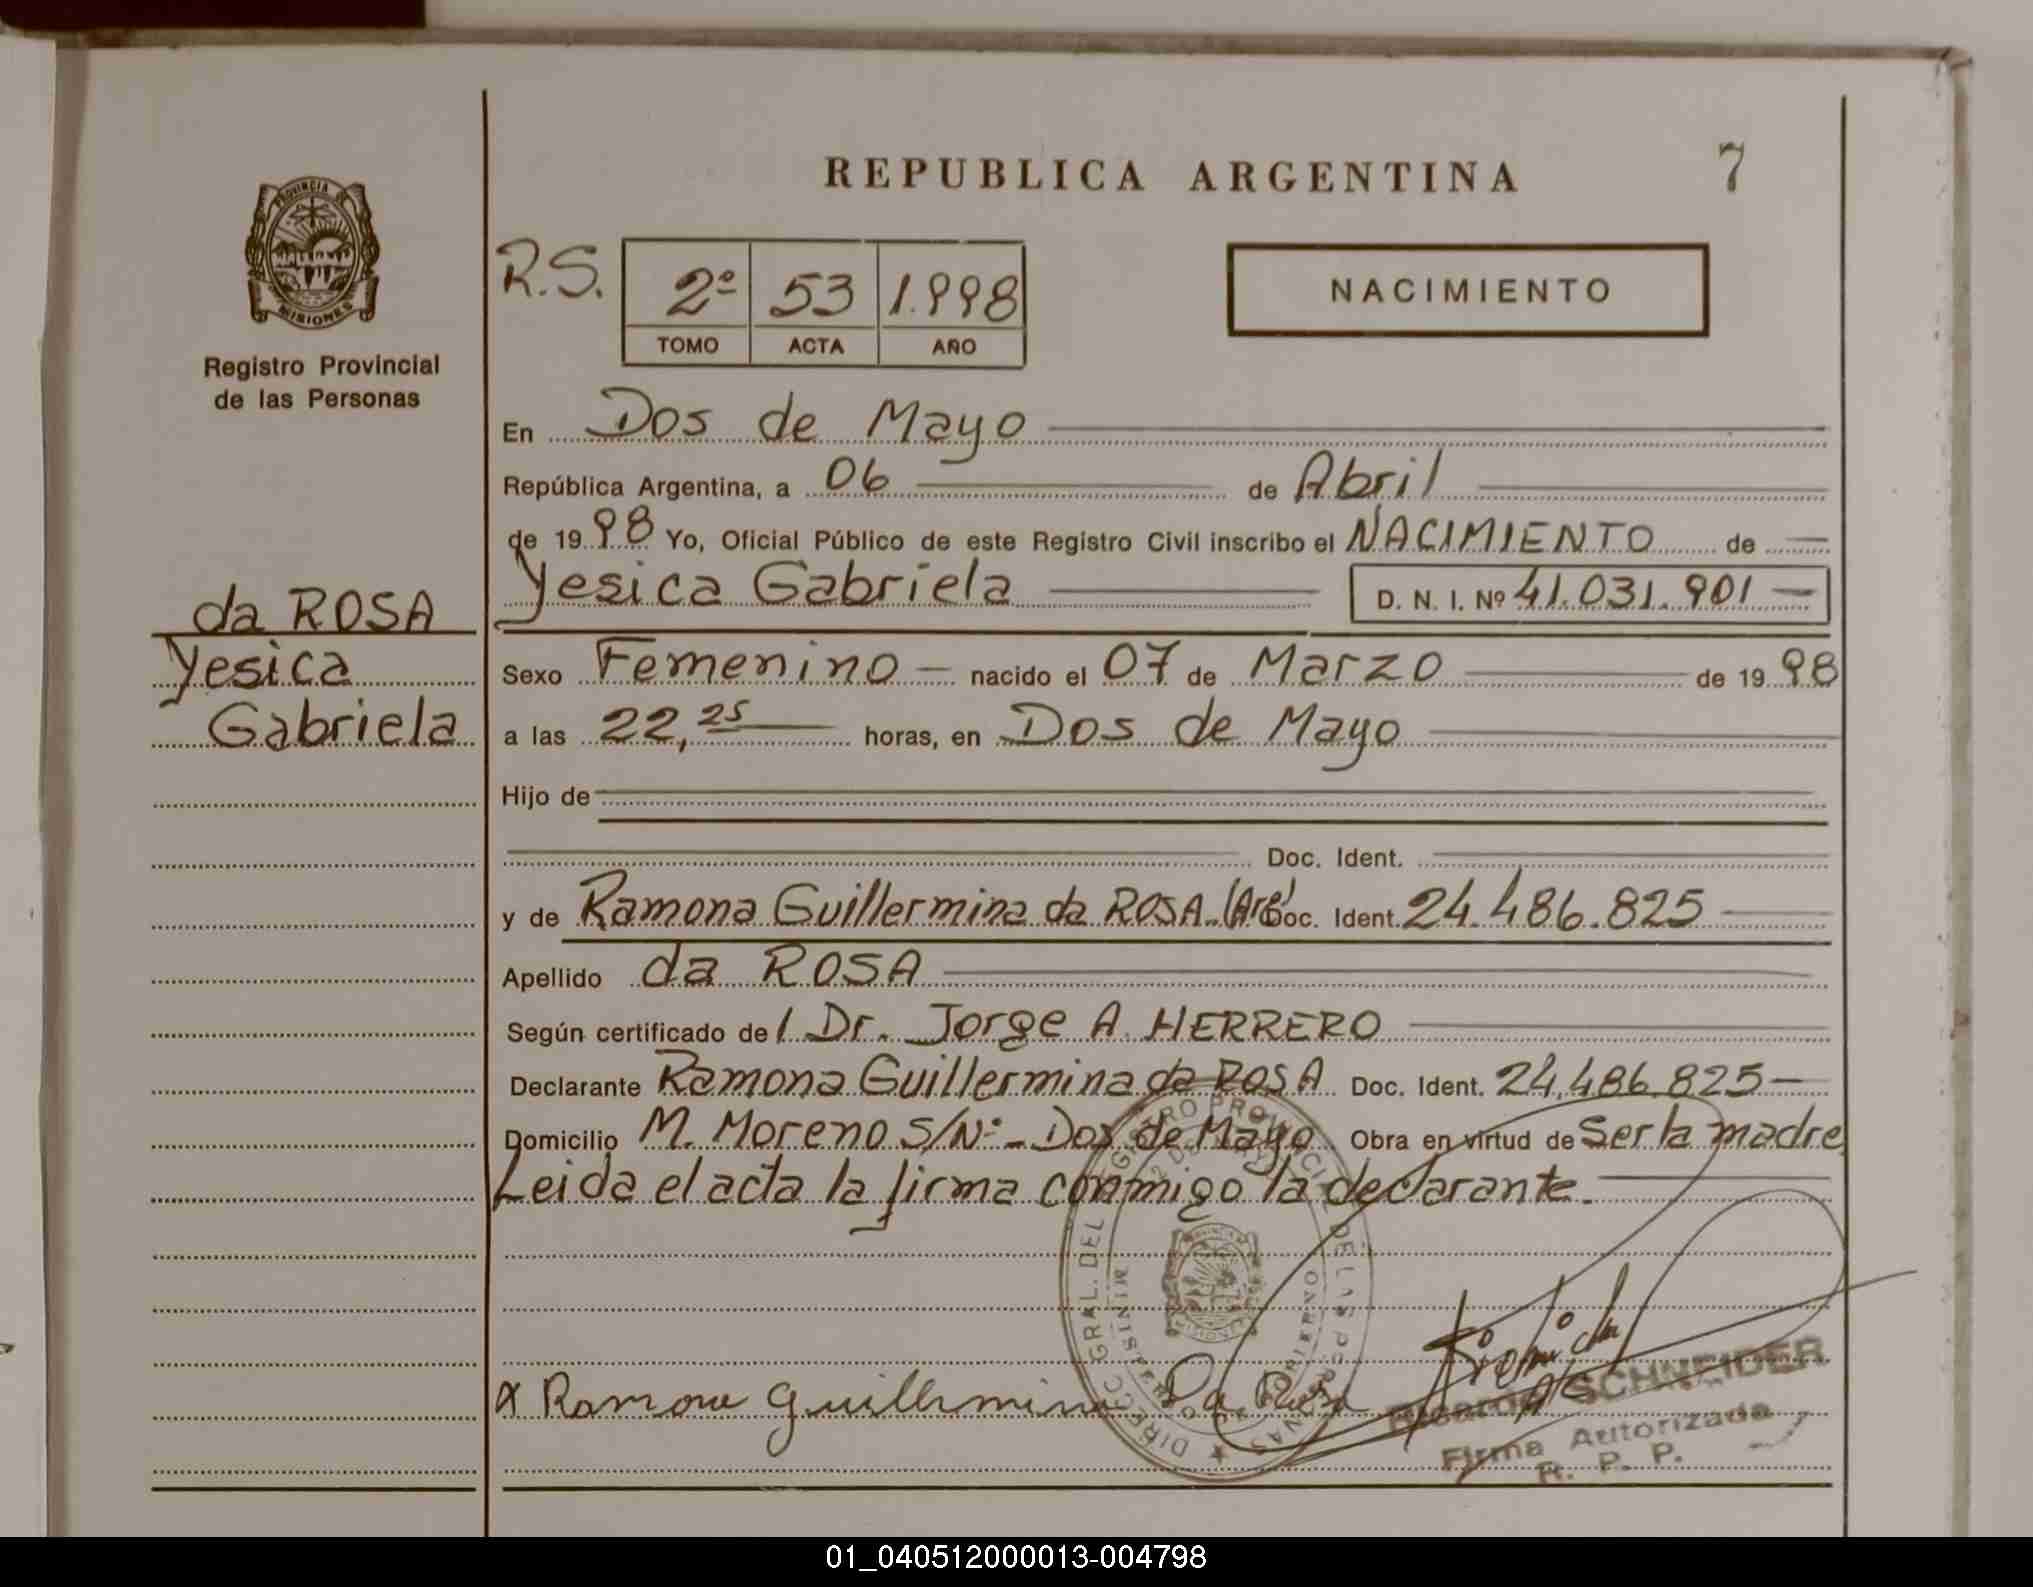 REPUBLICA ARGENTINA 7
PROVINCIA DE MISIONES
Registro Provincial
de las Personas
R.S. 2º 53 1.998
TOMO ACTA AÑO
NACIMIENTO
En Dos de Mayo
República Argentina, a 06 de Abril
de 1998 Yo, Oficial Público de este Registro Civil inscribo el NACIMIENTO de
Yesica Gabriela D. N. I. Nº 41.031.901
da ROSA
Yesica
Gabriela
Sexo Femenino nacido el 07 de Marzo de 1998
a las 22,25 horas, en Dos de Mayo
Hijo de
Doc. Ident.
y de Ramona Guillermina da ROSA. (Arg) Doc. Ident. 24.486.825
Apellido da ROSA
Según certificado de l Dr. Jorge A. HERRERO
Declarante Ramona Guillermina da ROSA Doc. Ident. 24.486.825
Domicilio M. Moreno S/Nº - Dos de Mayo Obra en virtud de Ser la madre
Leida el acta la firma conmigo la declarante.
DIRECC GRAL. DEL REGISTRO PROVINCIAL DE LAS PERSONAS
MINISTERIO DE GOBIERNO
x Ramona Guillermina Da Rosa
Ricardo SCHNEIDER
Firma Autorizada
R. P. P.
01_040512000013-004798